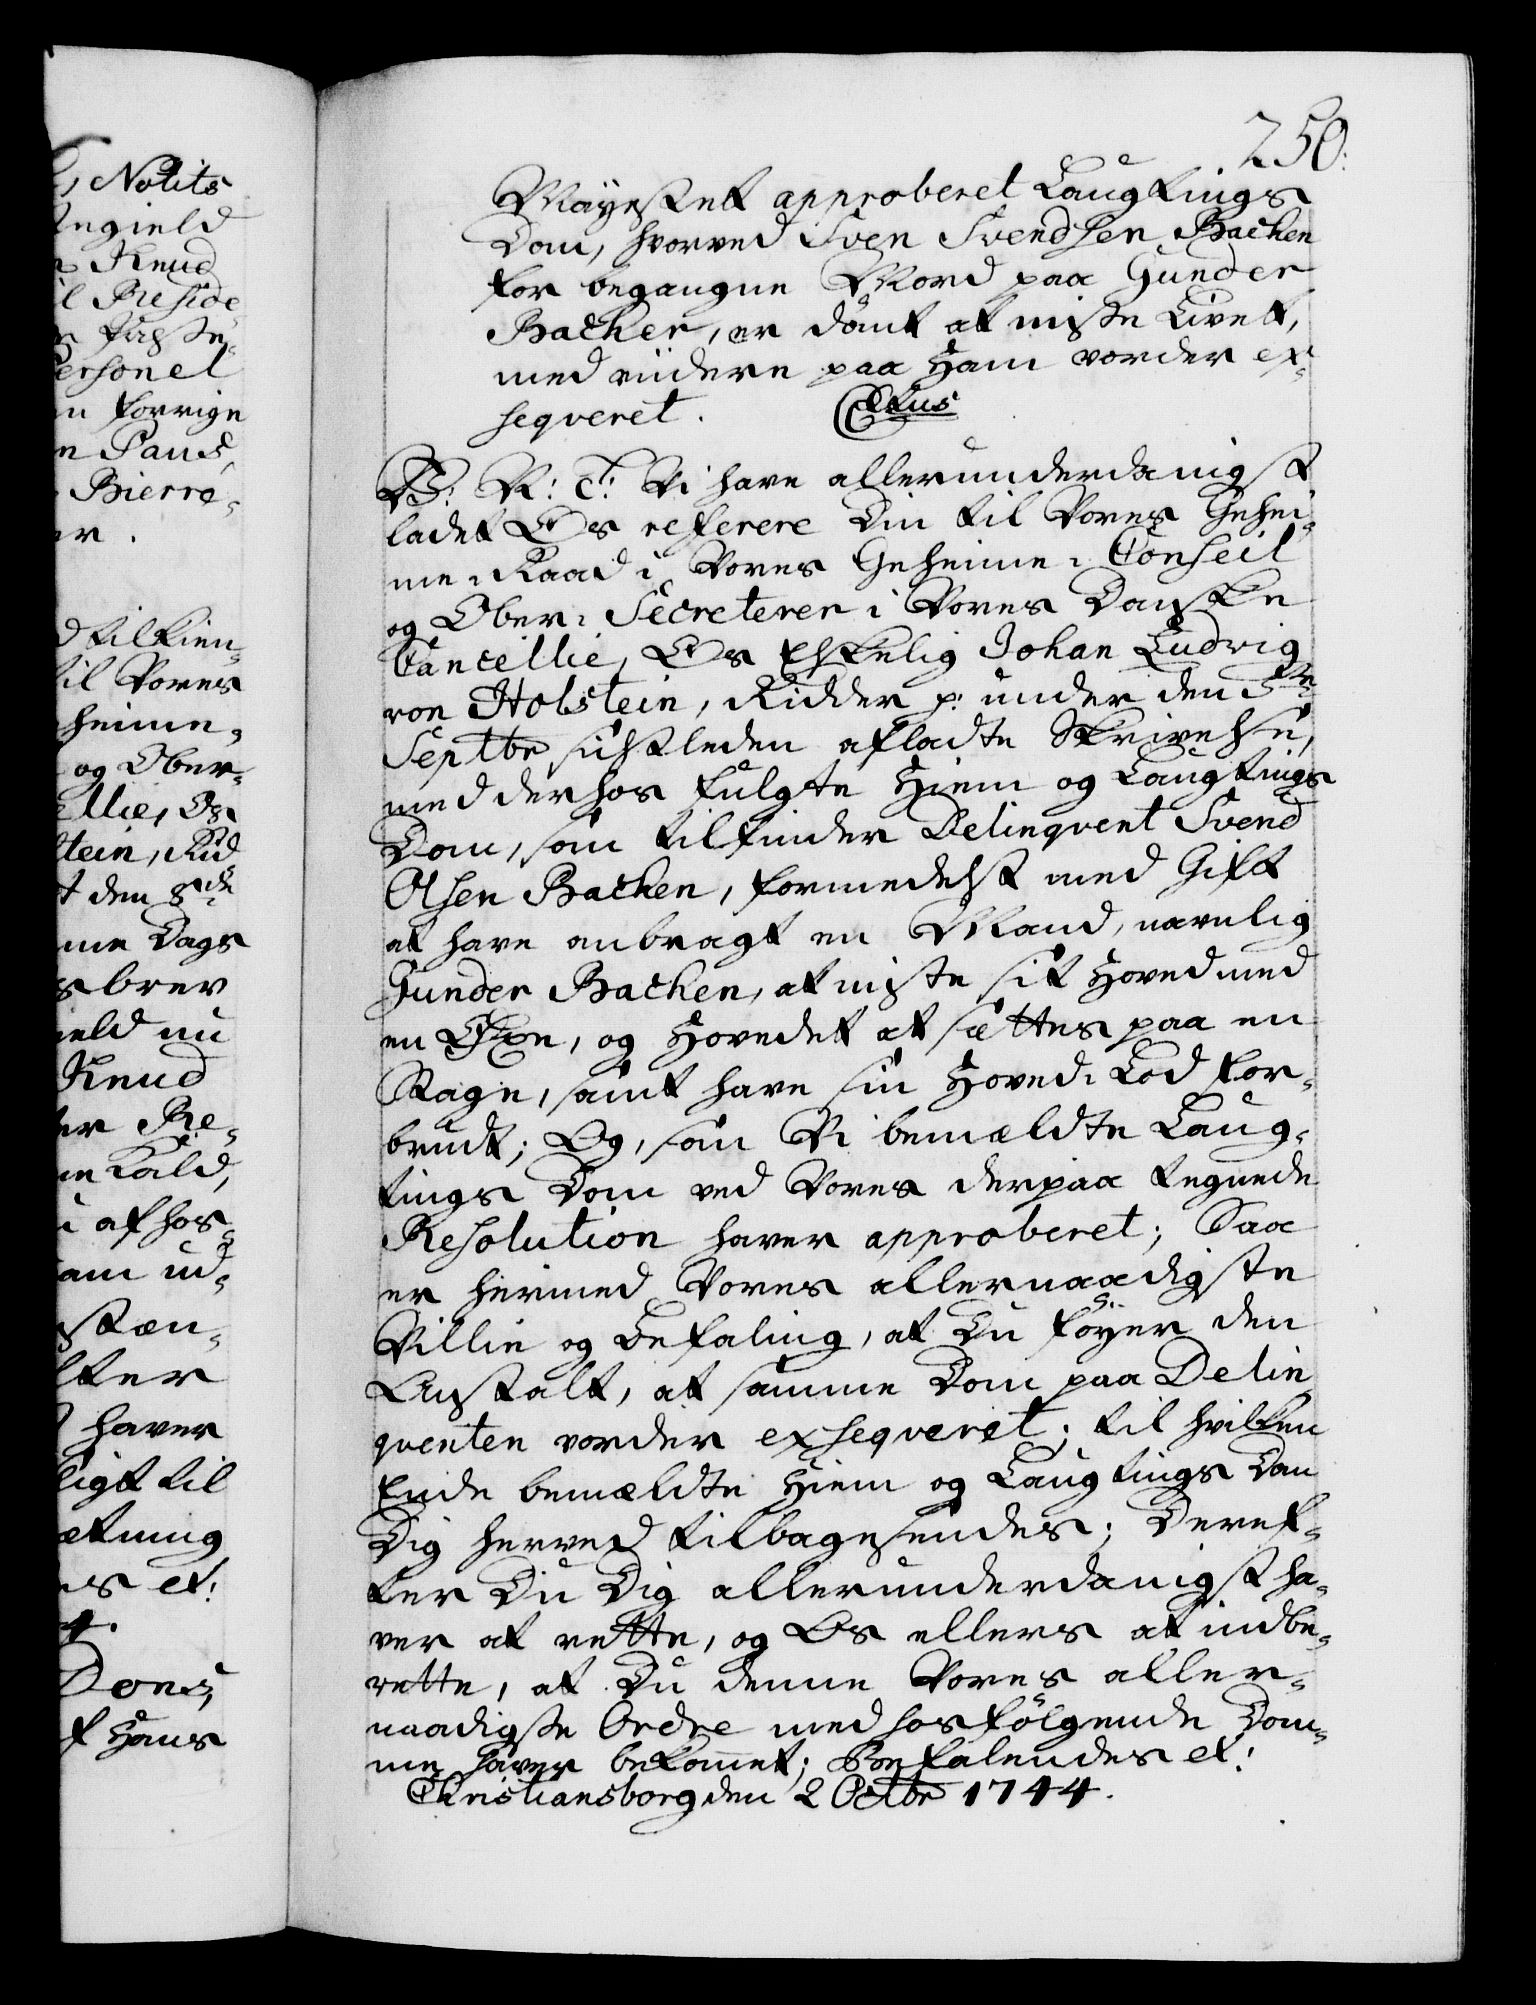 250.
Mayestet approberet Laugtings
Dom, hvorved Sven Svendsen Bachen
for begangne Mord paa Gunder
Bachen, er dömt at miste Livet,
med viidere paa Ham vorder ex¬
seqveret.
C. 6tus. V: G: T: Vi have allerunderdanigst
ladet Os referere Din til Vores Gehei¬
me-Raad i Vores Geheime-Conseil
og Ober-Secreterer i Vores Danske
Cancellie, Os Elskelig Johan Ludvig
von Holstein, Ridder p: under den 5te
Septbr sidstleden afladte Skrivelse,
med derhos fulgte Hiem og Laugtings
Dom, som tilfinder Delinqvent Svend
Olsen Bachen, formedelst med Gift
at have ombragt en Mand, navnlig
Gunder Bachen, at miste sit Hoved med
en Öxe, og Hovedet at sættes paa en
Stage, samt have sin Hoved-Lod for¬
brudt; Og, som Vi bemældte Laug¬
tings Dom ved Vores derpaa tegnede
Resolution haver approberet; Saa
er hermed Vores allernaadigste
Villie og Befaling, at Du föyer den
Anstalt, at samme Dom paa Delin¬
qventen vorder exseqveret; til hvilken
Ende bemældte Hiem og Laugtings Dom
Dig herved tilbagesendes; Deref¬
ter Du Dig allerunderdanigst ha¬
ver at rette, og Os ellers at indbe¬
rette, at Du denne Vores aller¬
naadigste Ordre med hosfölgende Dom¬
me haver bekommet; Befalendes et:
Christiansborg den 2 Octbr 1744.
Notits
Knud
Reside
Personel
forrige
Paus,
Bierre¬
er.
tilkien¬
til Vores
heime¬
og Ober¬
ellie, Os
stein, Rid
den 8de
Dags
brev
ield nu
Knud
er Re¬
Kald,
af hos¬
am ud¬
haver
ligt til
ætning
es et:
4.
f Hans